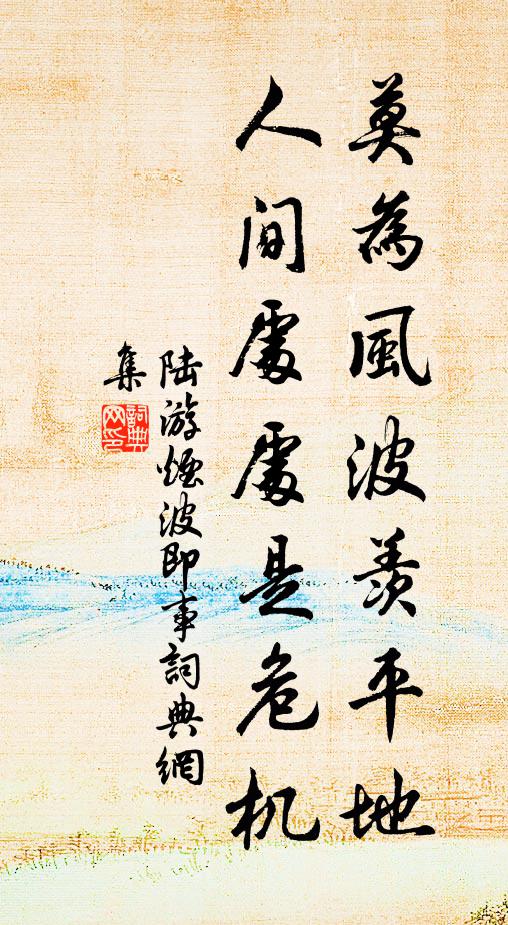 莫為風波羨平地
人間處處是危机
陸游煙波即事詞典網
集
詞典
网印